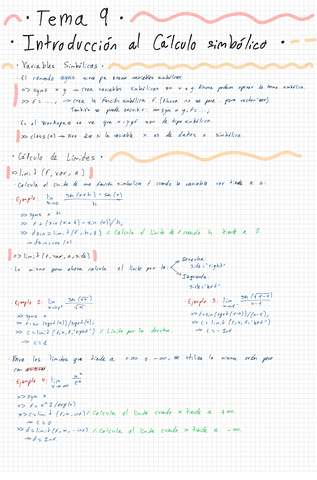 · Tema 9 ·
· Introducción al Cálculo simbólico ·
· Variables Simbólicas ·
· El comando syms sirve para crear variables simbólicas
>> syms x y → crea variables simbólicas x e y Ahora podemos operar de forma simbólica.
>> f = ..., → crea la función simbólica f
También se puede escribir: >> syms x y, f = ...,
· En el Workspace se ve que x, y, f son de tipo simbólico.
>> class(x) → Nos dice si la variable x es de datos o simbólica.
· Cálculo de Límites ·
>> limit (f, var, a)
· Calcula el límite de una función simbólica f cuando la variable var tiende a a.
Ejemplo: lim h→0 sen(x+h) - sen(x) / h
>> syms x h
>> f = (sin(x+h) - sin(x))/h,
>> dsin = limit(f, h, 0) % Calcula el límite de f cuando h tiende a 0.
→ dsin = cos(x)
>> limit (f, var, a, side)
Lo mismo pero ahora calcula el límite por la:
Derecha:
side: 'right'
Izquierda:
side: 'left'
Ejemplo 2: lim
>> syms x
>> c = limit(f, x, 0, 'right') % Límite por la derecha.
→ c = 1
Ejemplo 3: lim
>> c = limit(f, x, 1, 'left')
→ c = -Inf
· Para los límites que tiende a +∞ o -∞, se utiliza la misma orden pero
con
Ejemplo 4: lim x→∞ x² / eˣ
>> syms x
>> f = x^2/exp(x)
>> c = limit(f, x, inf) % Calcula el límite cuando x tiende a +∞.
→ c = 0
>> d = limit(f, x, -inf) % Calcula el límite cuando x tiende a -∞.
→ d = Inf.